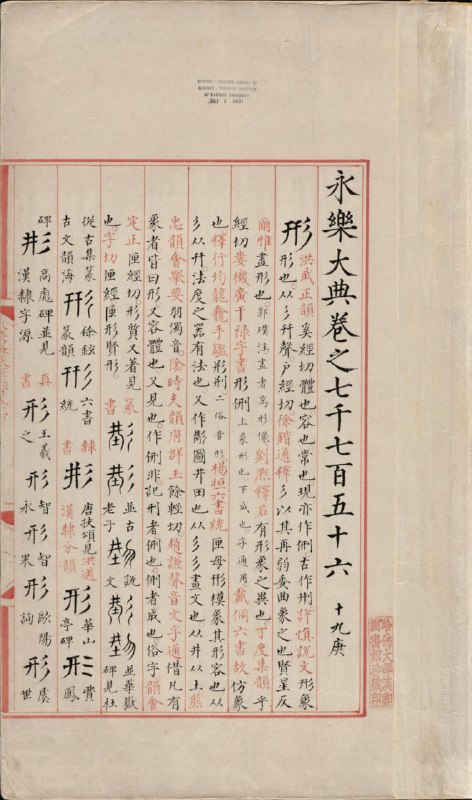 永樂大典卷之七千七百五十六 十九庚
形 洪武正韻奚經切體也容也常也現亦作侀古作𠛬許慎說文形象
形也从彡幵聲戶經切徐鍇通釋彡以其再弱委曲象之也賢星反
爾雅畫形也郭璞注畫者為形像劉熙釋名有形象之異也丁度集韻乎
經切婁機廣干祿字書形侀上象形也下成也字通用戴侗六書故仿象
也釋行均龍龕手鑑形㓝二俗音形楊桓六書統匣母形模象其形容也从
彡从幵法度之器有法也又作彫圖井田也从彡彡畫文也从井从土熊
忠韻會舉要羽濁音陰時夫韻府群玉餘輕切趙謙聲音文字通借凡有
象者皆曰形又容體也又見也作侀非記刑者侀也侀者成也俗字韻會
定正匣經切形質又着見也字切匣經匣形賢形
篆書 並古老子 說文 並華嶽碑見杜
從古集篆古文韻海 徐鉉篆韻 六書統 隸書 唐扶頌見洪适漢隸分韻 形華山亭碑 費鳳
碑 高彪碑並見漢隸字源 真書 形王羲之 形智永 形智果 形歐陽詢 形虞世